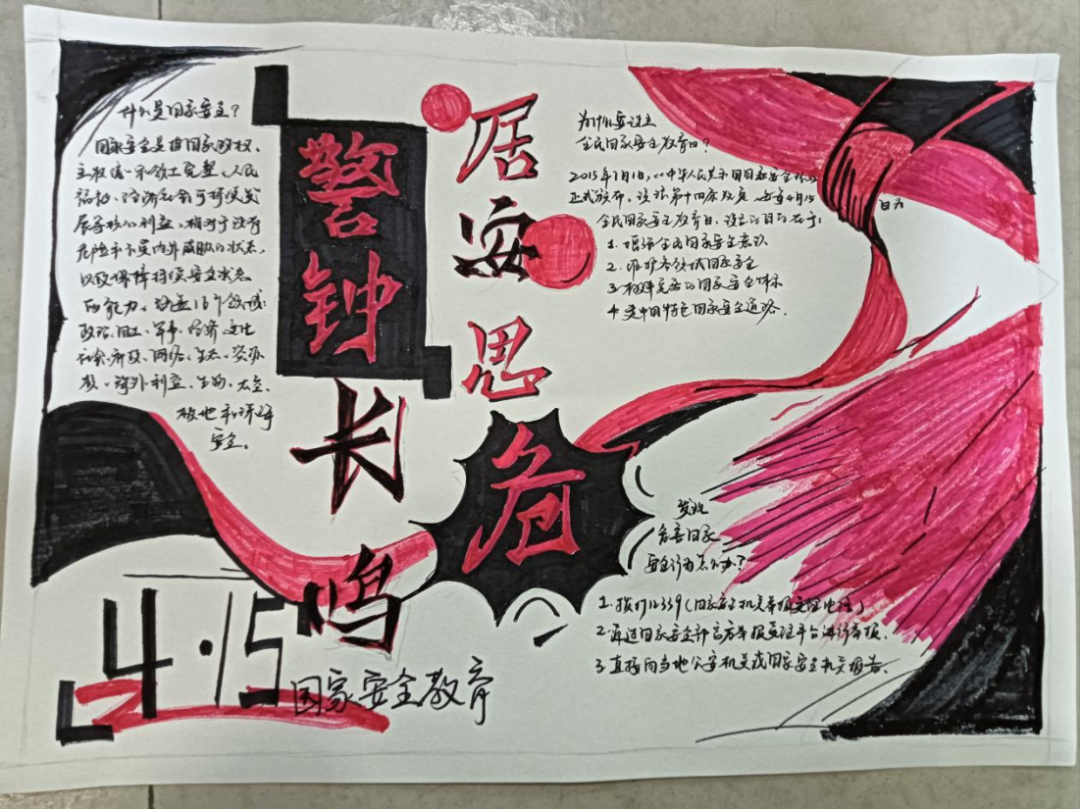 什么是国家安全?
国家安全是指国家政权、
主权、统一和领土完整、人民
福祉、经济社会可持续发
展等核心利益、相对于没有
危险和不受内外威胁的状态,
以及保障持续安全状态
的能力。涵盖16个领域:
政治、国土、军事、经济、文化
社会、科技、网络、生态、资源
核、海外利益、生物、太空、
极地和深海
安全。
警钟
长
鸣
居安思
危
为什么要设立
全民国家安全教育日?
2015年7月1日,《中华人民共和国国家安全法》
正式颁布,设法第十四条规定,每年4月15
全民国家安全教育日,设立的目的在于:
1.增强全民国家安全意识
2.维护各领域国家安全
3.构建完善的国家安全体系
4.走中国特色国家安全道路.
发现
危害国家
安全行为怎么办?
1.拨打12339(国家安全机关举报受理电话)
2.通过国家安全部官方举报受理平台进行举报.
3.直接向当地公安机关或国家安全机关报告.
4·15
国家安全教育